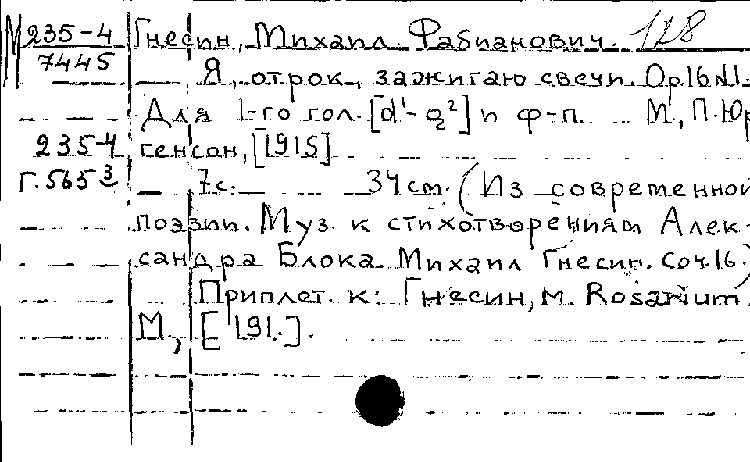 М 235-4 Гнесин, Михаил Фабианович. 128
7445 Я, отрок, зажигаю свечи. Op.16 №1.
Для 1-го гол. [d¹-g²] и ф-п. М., П. Юр-
235-4 генсон, [1915]
Г.565³ 7с. 34 см. (Из современной
поэзии. Муз. к стихотворениям Алек-
сандра Блока Михаил Гнесин. Соч.16.)
Приплет. к: Гнесин, М. Rosarium.
М., [191.].